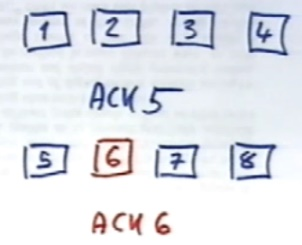 1 2 3 4
ACK 5
5 6 7 8
ACK 6